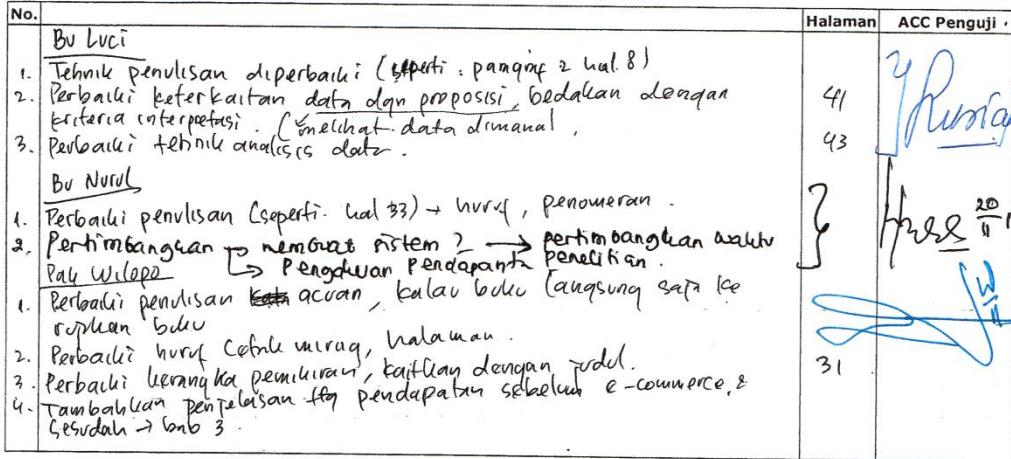 No. Halaman ACC Penguji
Bu Luci
1. Tehnik penulisan diperbaiki (seperti : paragraf 2 hal. 8)
2. Perbaiki keterkaitan data dgn proposisi, bedakan dengan 41
kriteria interpretasi. (melihat data dimana).
3. Perbaiki tehnik analisis data. 43
Bu Nurul
1. Perbaiki penulisan (seperti hal 33) → huruf, penomeran.
2. Pertimbangkan → membuat sistem ? → pertimbangkan waktu
penelitian.
↳ Pengakuan Pendapatan
20/11
Pak Wilopo
1. Perbaiki penulisan acuan, kalau buku langsung saja ke
rujukan buku
2. Perbaiki huruf cetak miring, halaman.
3. Perbaiki kerangka pemikiran, kaitkan dengan judul. 31
4. Tambahkan penjelasan ttg pendapatan sebelum e-commerce &
sesudah → bab 3.